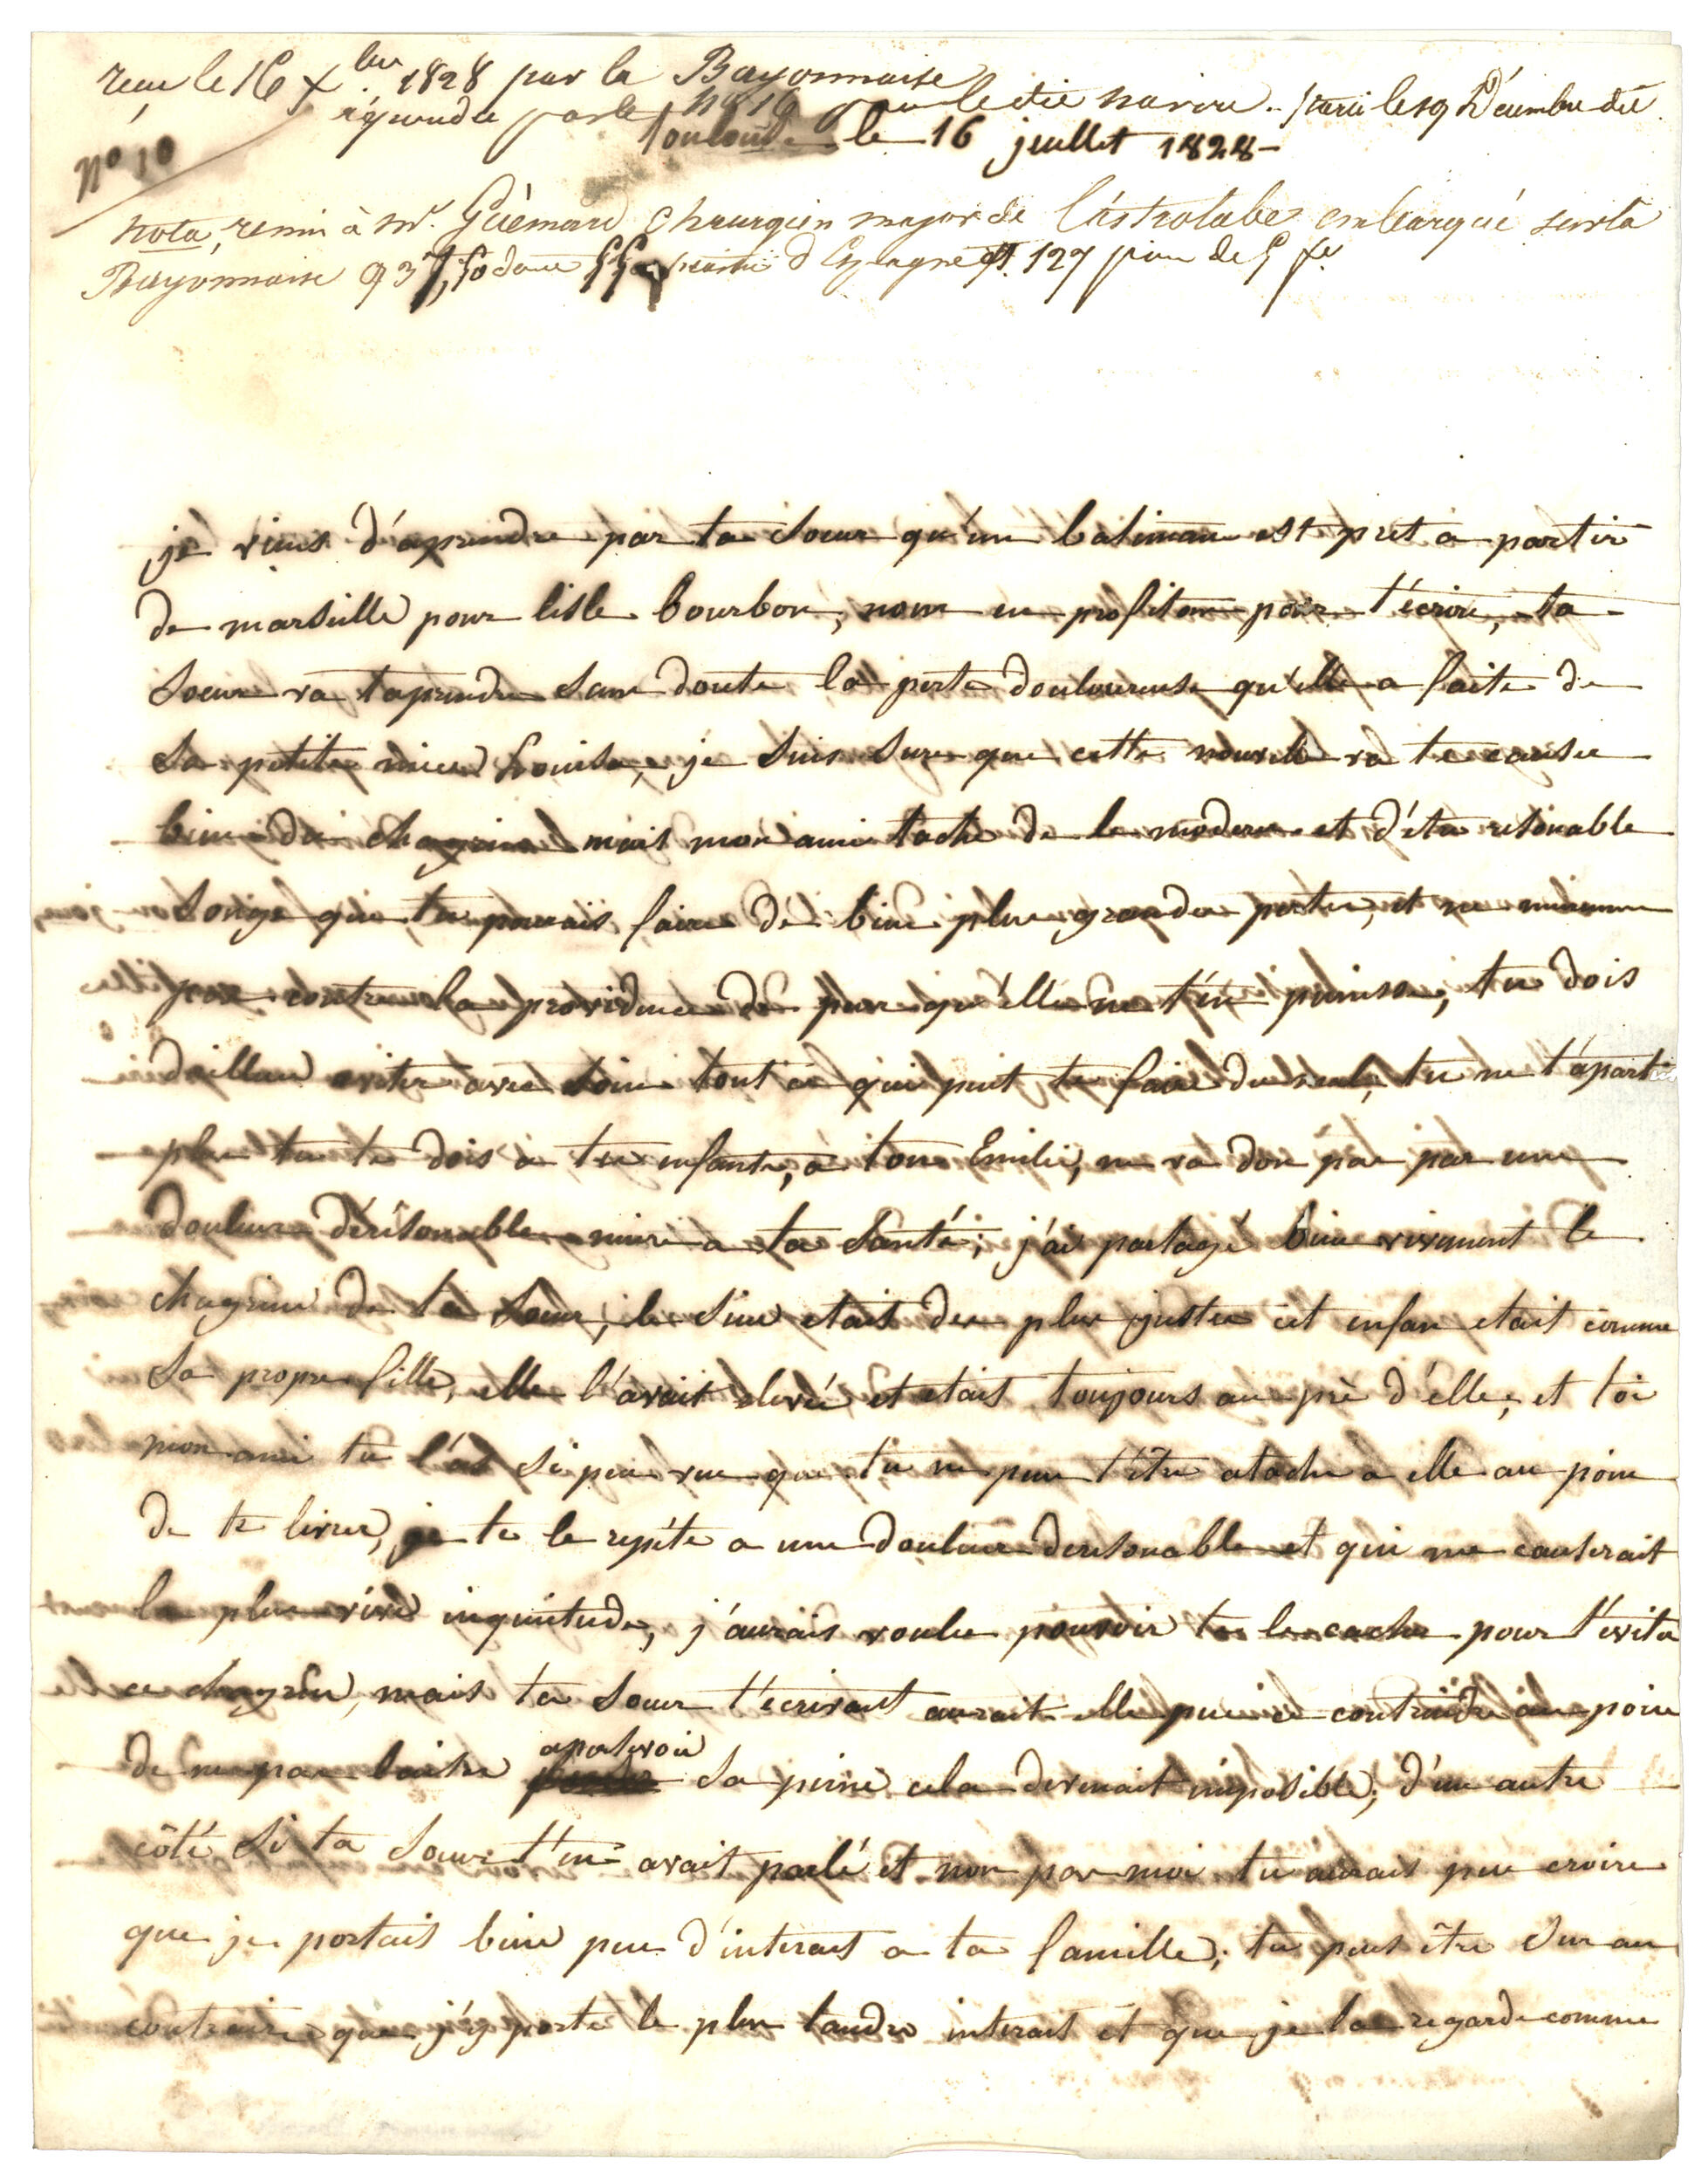 recu le 16 Xbre 1828 par la Bayonnaise
répondu par le n° 16 par le dit navire. parti le 19 Décembre dit.
Toulon le 16 juillet 1828-
N° 10
Nota, remis à Mr. Guémard Chirurgien major de l'astrolabe embarqué sur la
Bayonnaise 937,50 dont 55 d'Espagne et 127 pièces de 5 fs
je viens d'aprendre par ta soeur qu'un batiman est pret a partir
de marseille pour lisle bourbon, nous en profiton pour t'écrire, ta
soeur va taprendre sans doute la perte douloureuse qu'elle a faite de
sa petite niece Louisa, je suis sure que cette nouvelle va te causer
bien du chagrin mais mon ami tache de le moderer et d'étre résonable
songe que tu pouvais faire de bien plus grandes pertes, et ne murmure
pas contre la providence de peur qu'elle ne t'en punisse, tu dois
dailleur eviter avec soin tout ce qui peut te faire du mal, tu ne t'apartiens
plus tu te dois a tes enfants, a ton Emilie, ne va don pas par une
douleur dérésonable nuire a ta santé; j'ai partagé bien vivement le
chagrin de ta soeur, le sien etait des plus justes cet enfan etait comme
sa propre fille, elle l'avait elevée et etait toujours au prè d'elle; et toi
mon ami tu l'as si peu vue que tu ne peu t'être ataché a elle au poin
de te livrer, je te le repéte a une douleur deresonable et qui me causerait
la plus vive inquietude, j'aurais voulu pouvoir te le cacher pour t'eviter
ce chagrin, mais ta soeur t'ecrivant aurait elle pu ce contraindre au poin
de ne pas laisser apersevoir sa peine cela devenait imposible; d'un autre
côté si ta soeur t'en avait parlé et non pas moi tu aurais peu croire
que je portais bien peu d'interait a ta famille; tu peus être sur au
contraire que j'y porte le plus tandre interait et que je la regarde comme